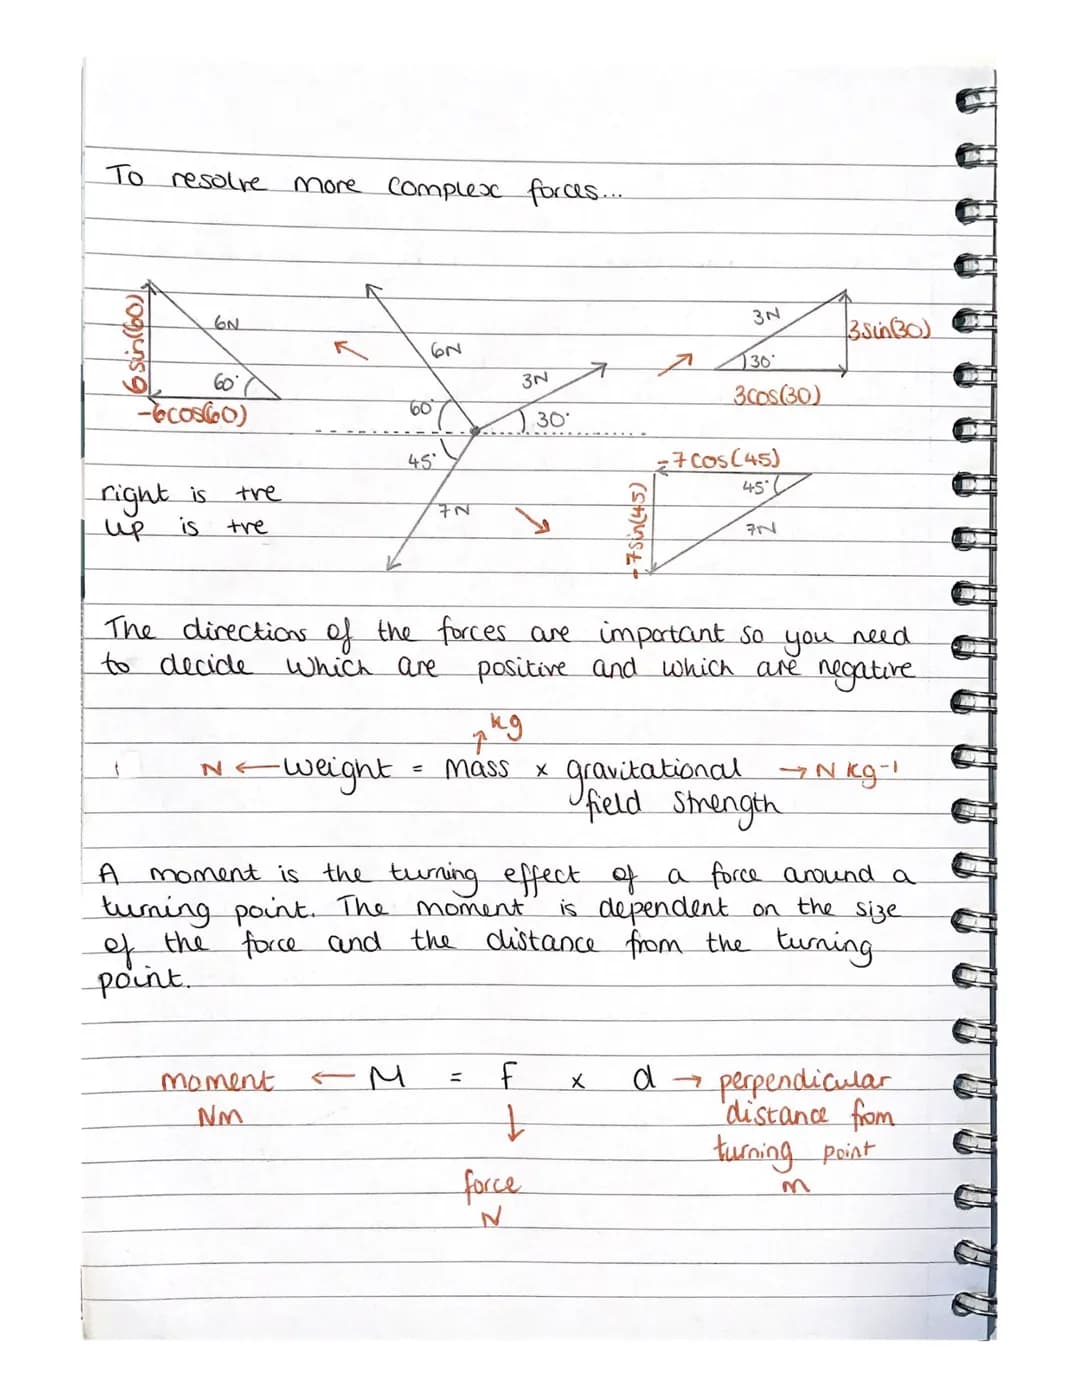 To resolve more complex forces...
6sin(60)
6N
60°
-6cos(60)
6N
3N
60°
30°
45°
7N
3N
3sin(30)
30°
3cos(30)
-7cos(45)
45°
-7sin(45)
7N
right is +ve
up is +ve
The directions of the forces are important so you need
to decide which are positive and which are negative
kg
N ← weight = mass x gravitational → N kg-1
field strength
A moment is the turning effect of a force around a
turning point. The moment is dependent on the size
of the force and the distance from the turning
point.
moment ← M = f x d → perpendicular
Nm
distance from
turning point
m
force
N